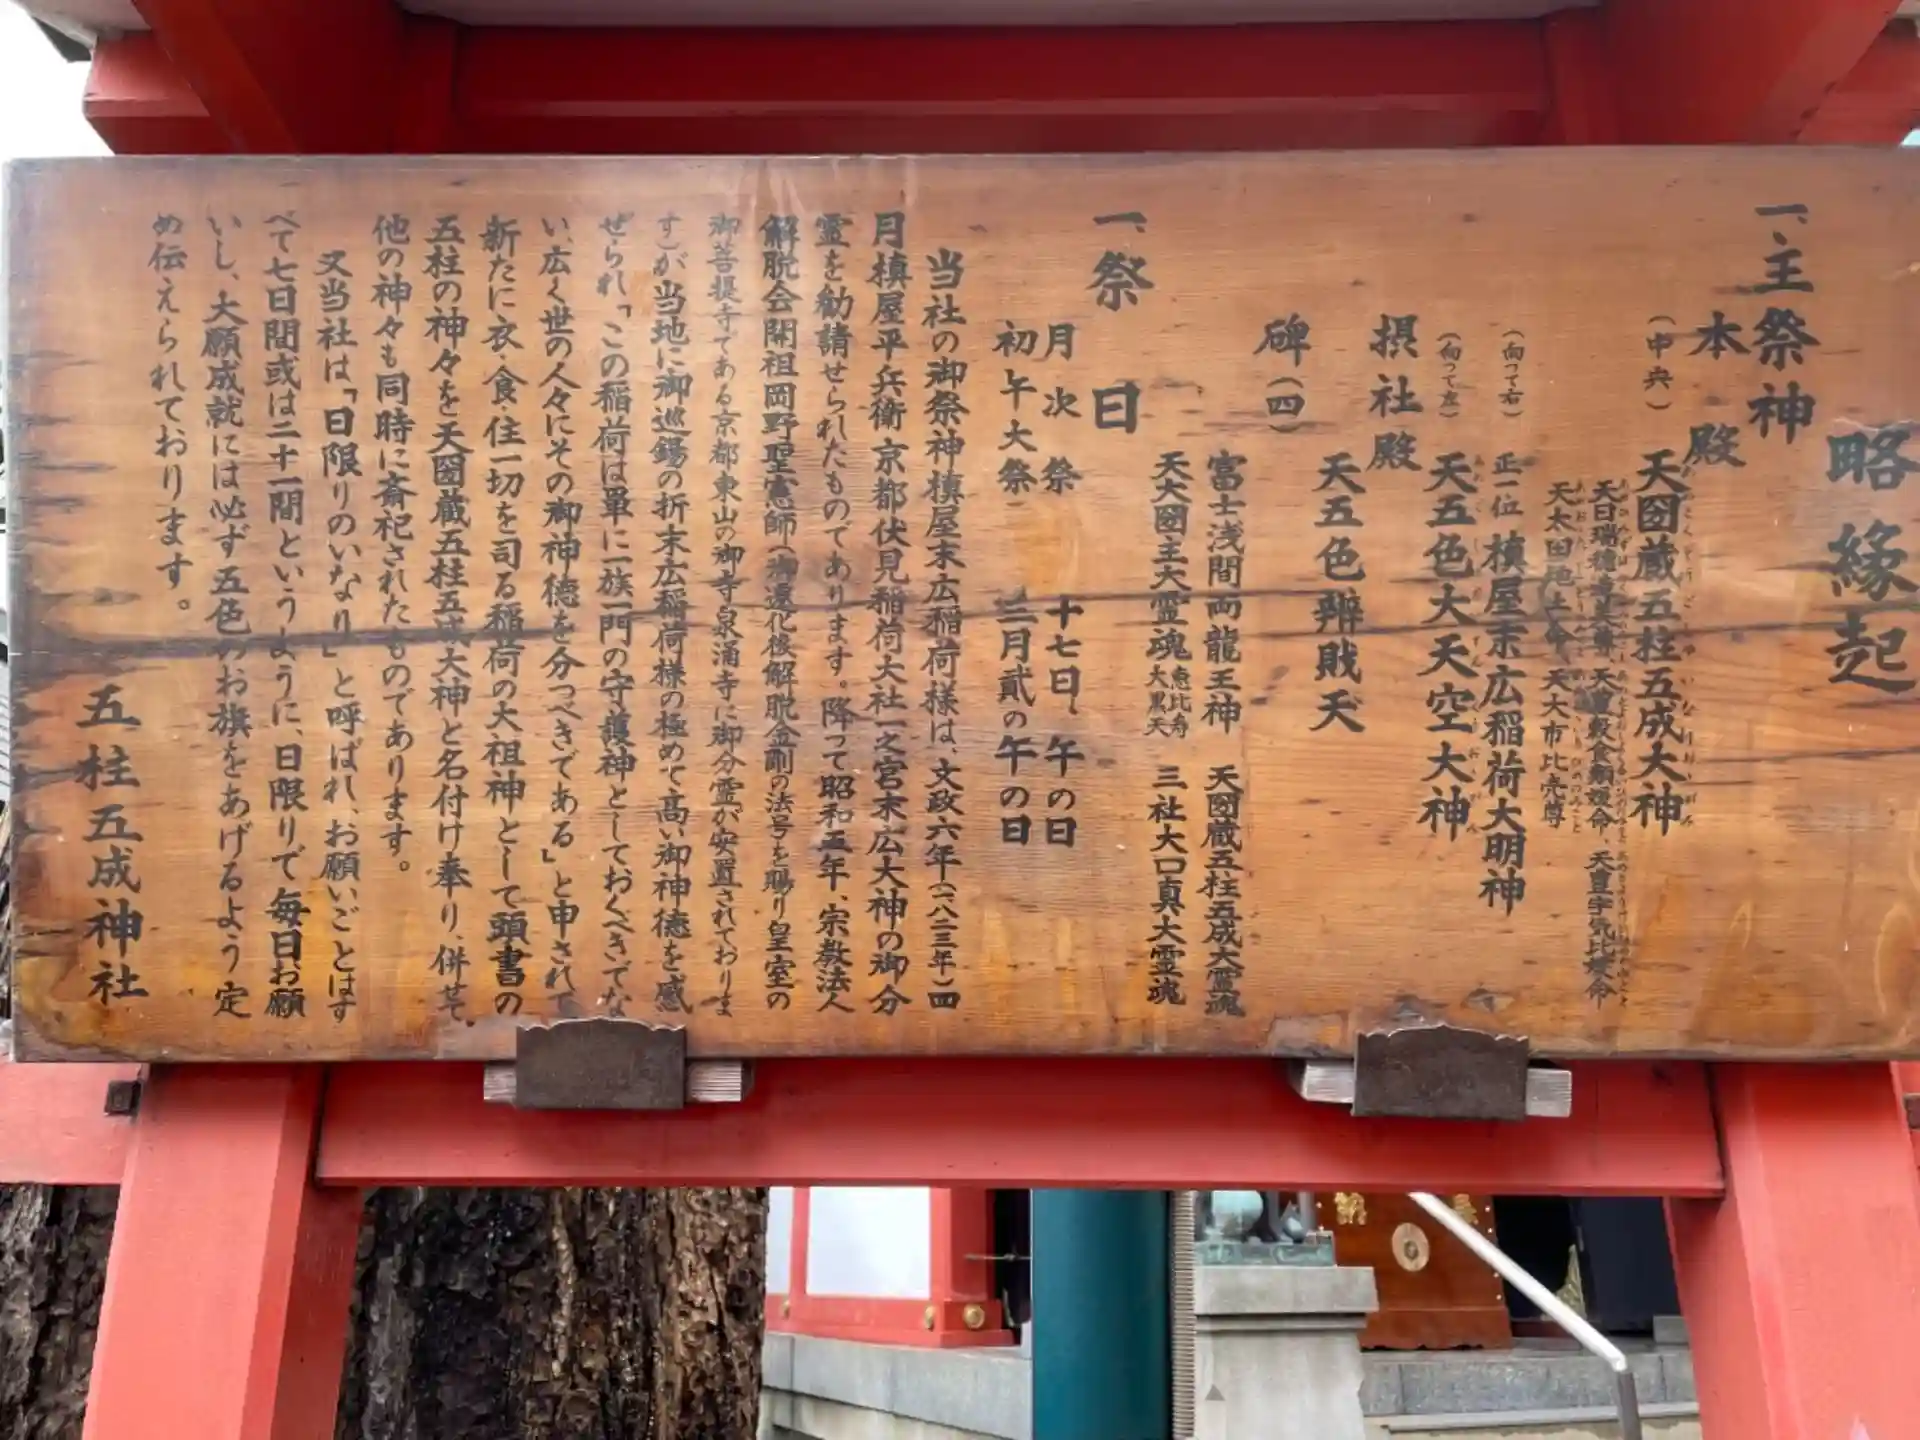 略縁起
一、主祭神
本殿
(中央) 天圀蔵五柱五成大神
天日瑞穂寿美尊 天豊穀食類姫命、天豊宇気比姫命
天太田地土命、天大市比売尊
(向って右) 正一位 槙屋末広稲荷大明神
(向って左) 天五色大天空大神
摂社殿
天五色辨財天
碑(四)
富士浅間両龍王神 天圀蔵五柱五成大霊魂
天大圀主大霊魂 恵比寿 大黒天 三社大口真大霊魂
一、祭日
月次祭 十七日、午の日
初午大祭 三月貳の午の日
当社の御祭神槙屋末広稲荷様は、文政六年(一八二三年)四
月槙屋平兵衛京都伏見稲荷大社一之宮末広大神の御分
霊を勧請せられたものであります。降って昭和五年、宗教法人
解脱会開祖岡野聖憲師(御遷化後解脱金剛の法号を賜り皇室の
御菩提寺である京都東山の御寺泉涌寺に御分霊が安置されておりま
す)が当地に御巡錫の折末広稲荷様の極めて高い御神徳を感
ぜられ、「この稲荷は単に一族一門の守護神としておくべきでな
い、広く世の人々にその御神徳を分つべきである」と申されて
新たに衣・食・住一切を司る稲荷の大祖神として頭書の
五柱の神々を天圀蔵五柱五成大神と名付け奉り、併せて
他の神々も同時に斎祀されたものであります。
又当社は「日限りのいなり」と呼ばれ、お願いごとはす
べて七日間或は二十一間というように、日限りで毎日お願
いし、大願成就には必ず五色のお旗をあげるよう定
め伝えられております。
五柱五成神社